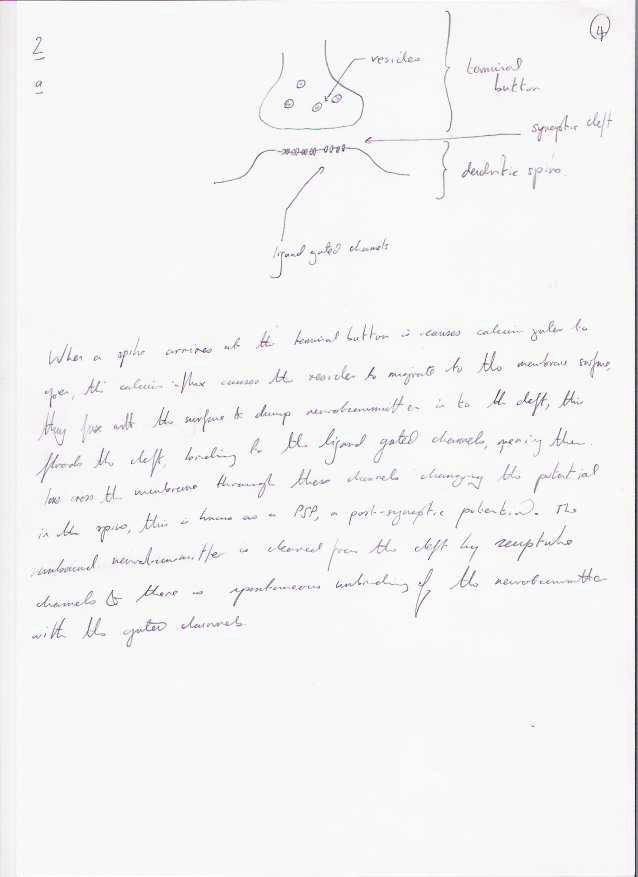 4
2
a
vesicles
terminal
button
synaptic cleft
dendritic spine
ligand gated channels
When a spike arrives at the terminal button is causes calcium gates to
open, this calcium influx causes the vesicles to migrate to the membrane surface,
they fuse with the surface to dump neurotransmitter in to the cleft, this
floods the cleft, bonding to the ligand gated channels, opening them.
Ions cross the membrane through these channels changing the potential
in the spine, this is known as a PSP, a post-synaptic potential. The
unbound neurotransmitter is cleared from the cleft by reuptake
channels & there is spontaneous unbinding of the neurotransmitter
with the gated channels.